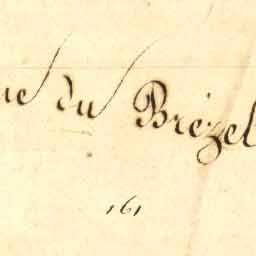 ue du Brézel
161